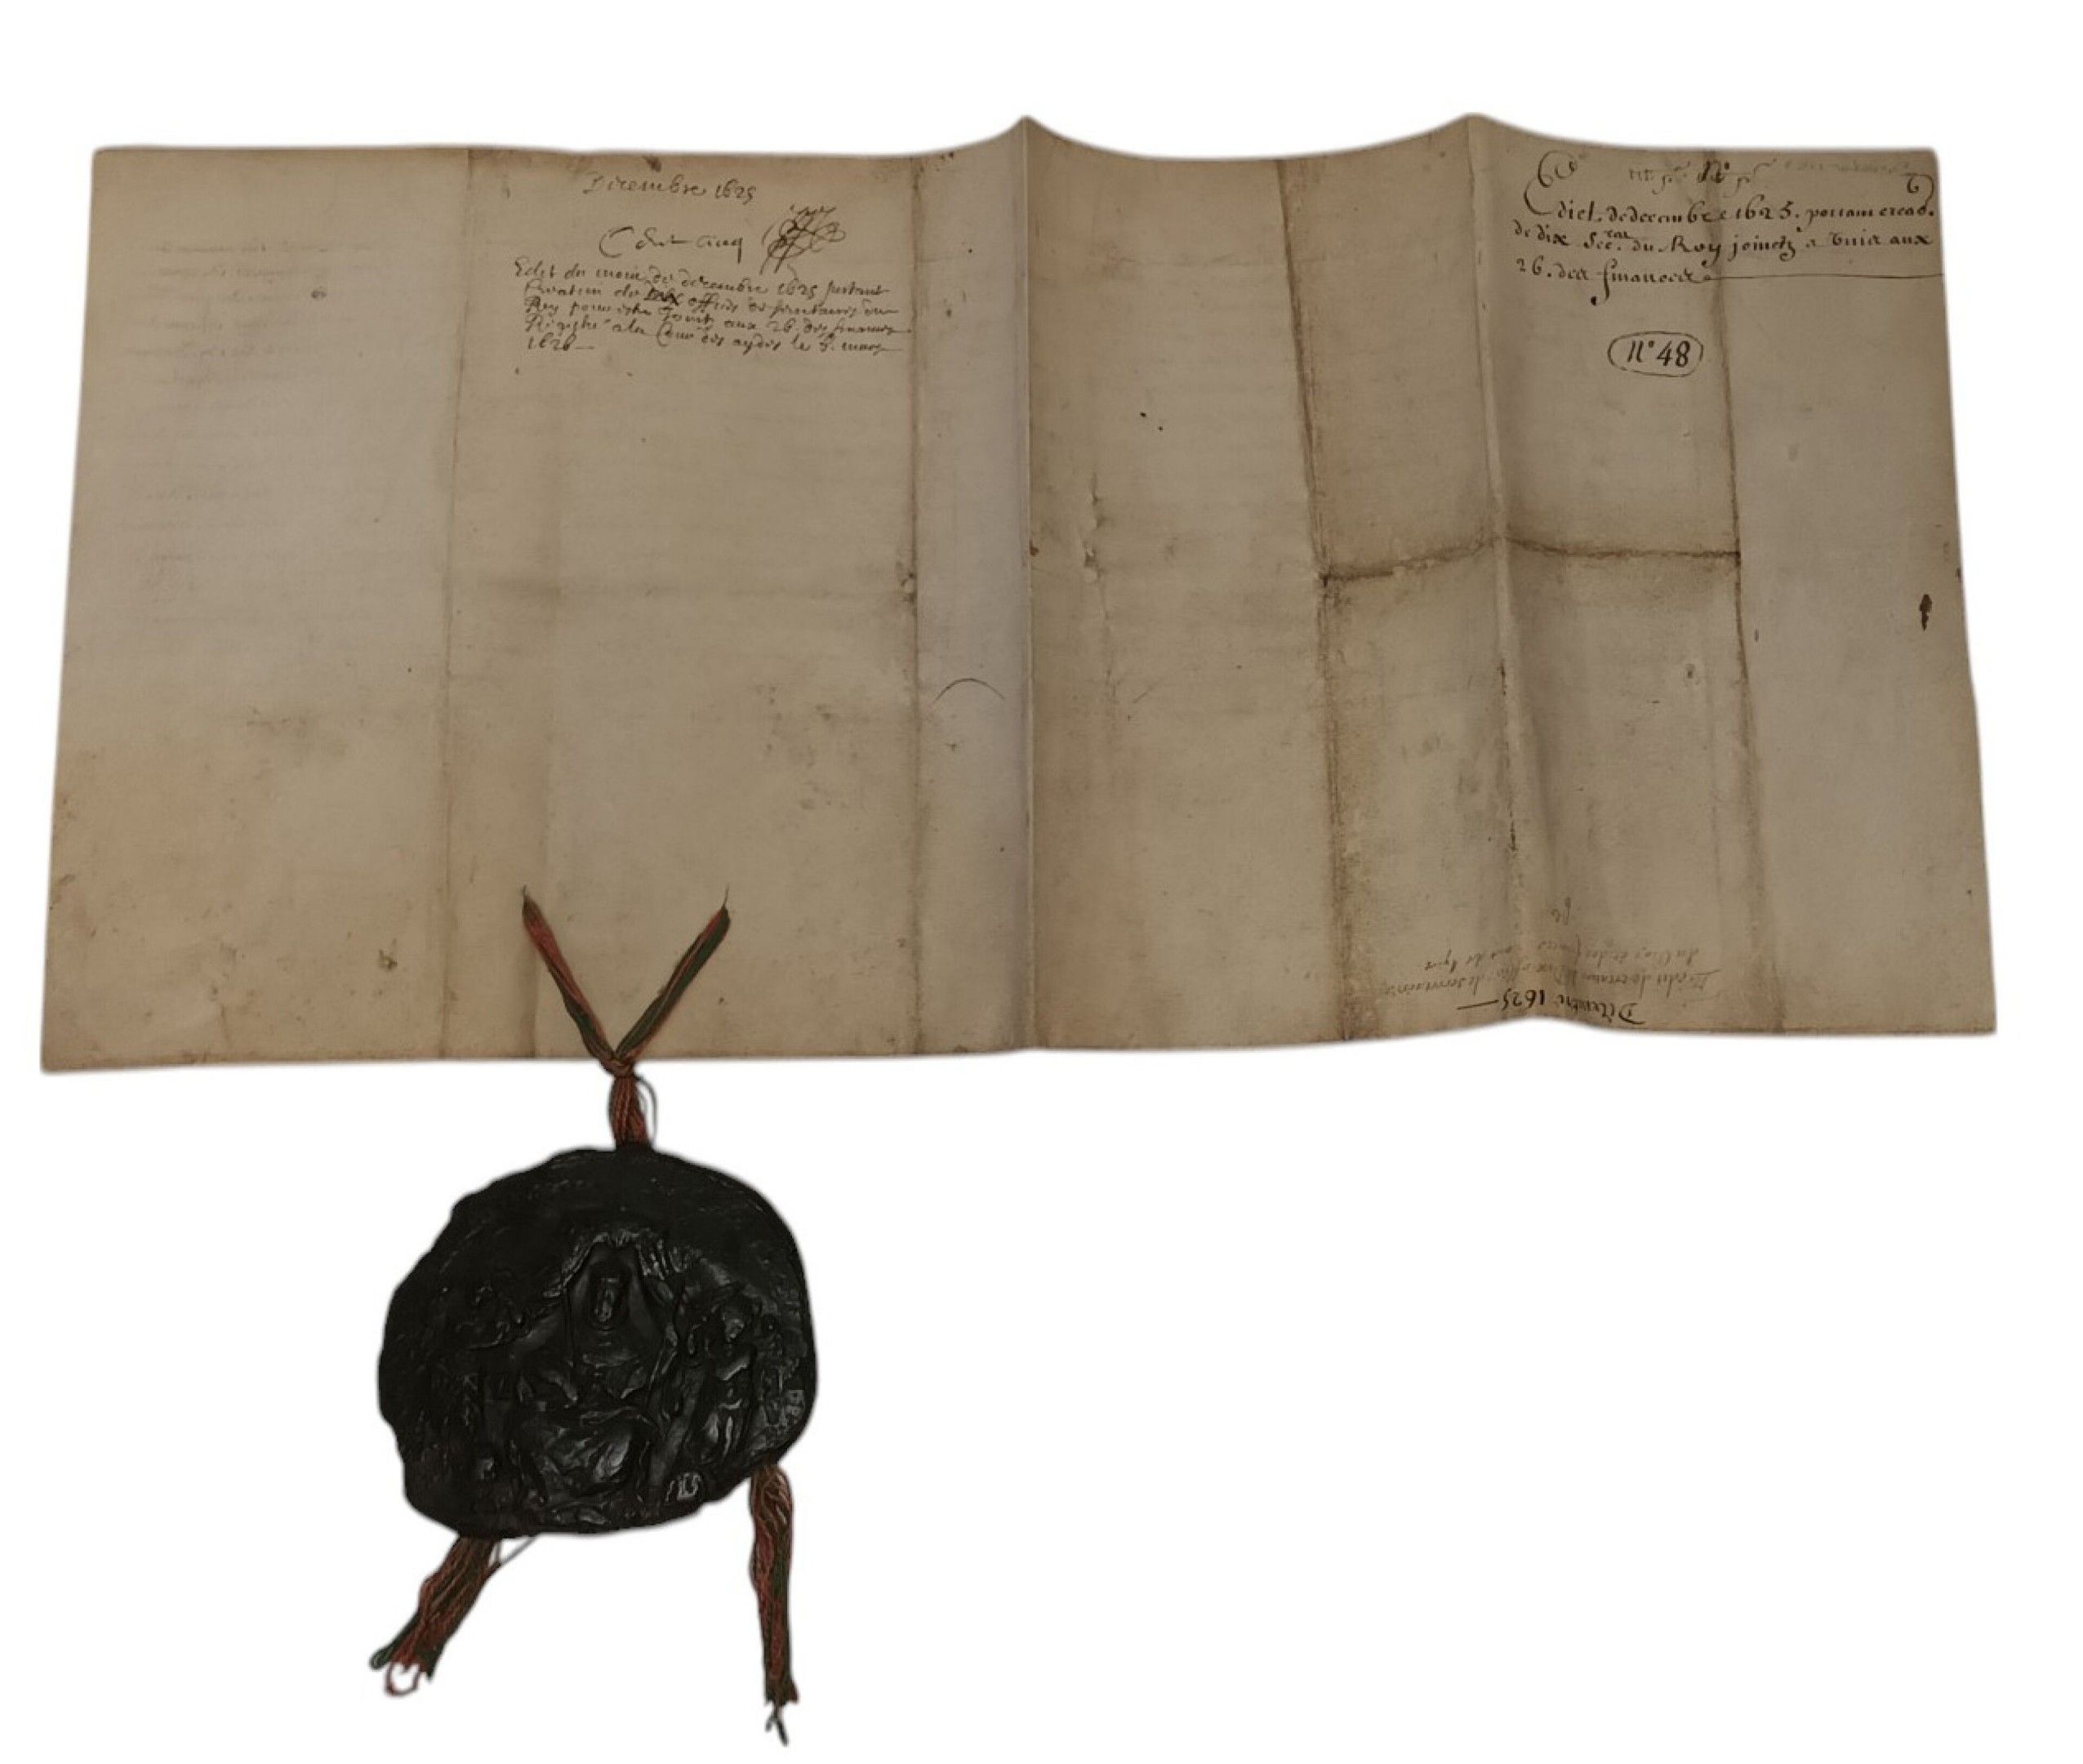 Decembre 1625
Edit du mois de decembre 1625 portant
Creation de dix offices de secretaires du
Roy pour estre Joints aux 26. des finances
Registré a la Cour des aydes le 5. mars
1626
Edict de decembre 1625. portant creaõn.
de dix Secres. du Roy joinctz a Unir aux
26. des finances
N° 48
Decembre 1625
Edit de creation de Dix offices de secretaires